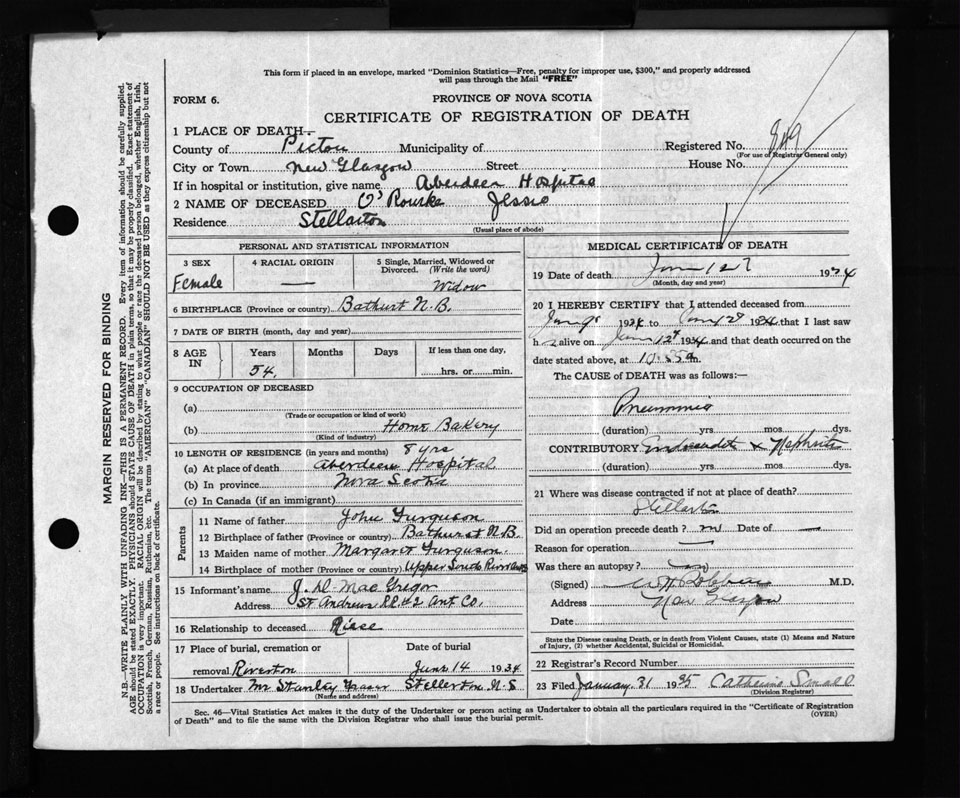 This form if placed in an envelope, marked "Dominion Statistics—Free, penalty for improper use, $300," and properly addressed
will pass through the Mail "FREE"
FORM 6.
PROVINCE OF NOVA SCOTIA
CERTIFICATE OF REGISTRATION OF DEATH
1 PLACE OF DEATH—
County of Pictou Municipality of Registered No. 849
(For use of Registrar General only)
City or Town New Glasgow Street House No.
If in hospital or institution, give name Aberdeen Hospital
2 NAME OF DECEASED O'Rourke Jessie
Residence Stellarton
(Usual place of abode)
PERSONAL AND STATISTICAL INFORMATION
3 SEX
Female
4 RACIAL ORIGIN
—
5 Single, Married, Widowed or
Divorced. (Write the word)
Widow
6 BIRTHPLACE (Province or country) Bathurst N.B.
7 DATE OF BIRTH (month, day and year)
8 AGE IN Years Months Days If less than one day,
54. hrs. or min.
9 OCCUPATION OF DECEASED
(a)
(Trade or occupation or kind of work)
(b) Home Bakery
(Kind of industry)
10 LENGTH OF RESIDENCE (in years and months) 8 yrs
(a) At place of death Aberdeen Hospital
(b) In province Nova Scotia
(c) In Canada (if an immigrant)
Parents
11 Name of father John Furguson
12 Birthplace of father (Province or country) Bathurst N.B.
13 Maiden name of mother Margaret Furguson.
14 Birthplace of mother (Province or country) Upper South River
15 Informant's name J. D. Mac Gregor
Address St Andrews R.R. #2 Ant. Co.
16 Relationship to deceased Niese
17 Place of burial, cremation or Date of burial
removal Riverton June 14 1934
18 Undertaker Mr Stanley Fraser Stellerton N S
(Name and address)
MEDICAL CERTIFICATE OF DEATH
19 Date of death June 12 1934
(Month, day and year)
20 I HEREBY CERTIFY that I attended deceased from
June 9 1934 to June 12 1934 that I last saw
h alive on June 12 1934 and that death occurred on the
date stated above, at 10.55 a
The CAUSE of DEATH was as follows:—
Pneumonia
(duration) yrs mos dys.
CONTRIBUTORY & Nephritis
(duration) yrs. mos. dys.
21 Where was disease contracted if not at place of death?
Stellarton
Did an operation precede death? no Date of —
Reason for operation —
Was there an autopsy? no
(Signed) M.D.
Address New Glasgow
Date
State the Disease causing Death, or in death from Violent Causes, state (1) Means and Nature
of Injury, (2) whether Accidental, Suicidal or Homicidal.
22 Registrar's Record Number
23 Filed January 31 1935 Catherine Small
(Division Registrar)
Sec. 46—Vital Statistics Act makes it the duty of the Undertaker or person acting as Undertaker to obtain all the particulars required in the "Certificate of Registration
of Death" and to file the same with the Division Registrar who shall issue the burial permit. (OVER)
MARGIN RESERVED FOR BINDING
N.B.—WRITE PLAINLY WITH UNFADING INK—THIS IS A PERMANENT RECORD. Every item of information should be carefully supplied.
AGE should be stated EXACTLY. PHYSICIANS should STATE CAUSE OF DEATH in plain terms, so that it may be properly classified. Exact statement of
OCCUPATION is very important. RACIAL ORIGIN will be described by stating to what people or race the deceased person belonged, whether English, Irish,
Scottish, French, German, Russian, Ruthenian, etc. The terms "AMERICAN" or "CANADIAN" SHOULD NOT BE USED as they express citizenship but not
a race or people. See instructions on back of certificate.